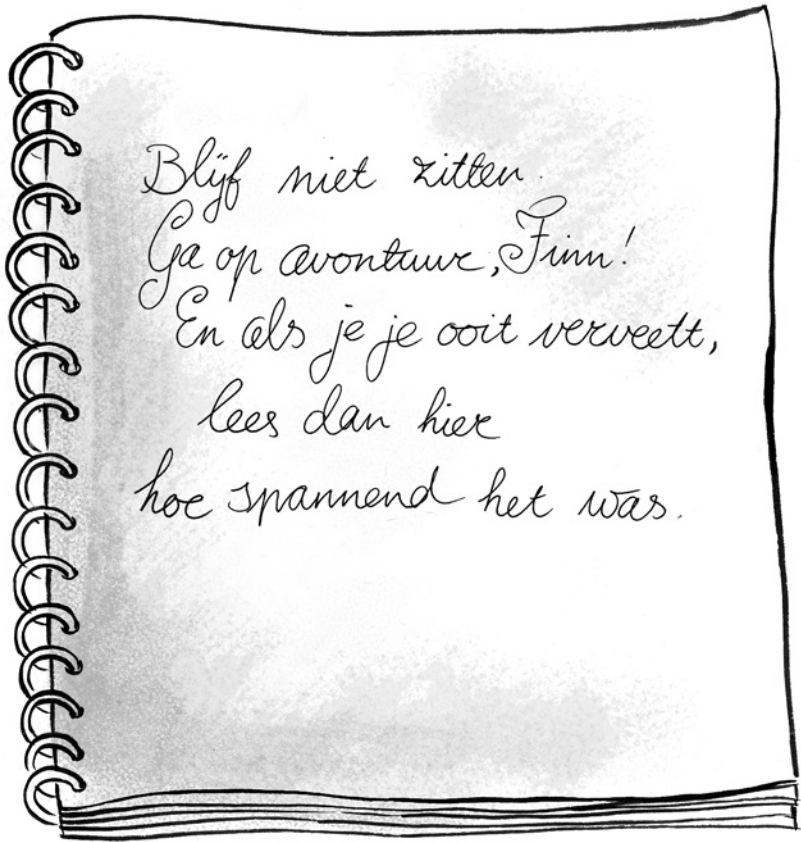 Blijf niet zitten.
Ga op avontuur, Finn!
En als je je ooit verveelt,
lees dan hier
hoe spannend het was.